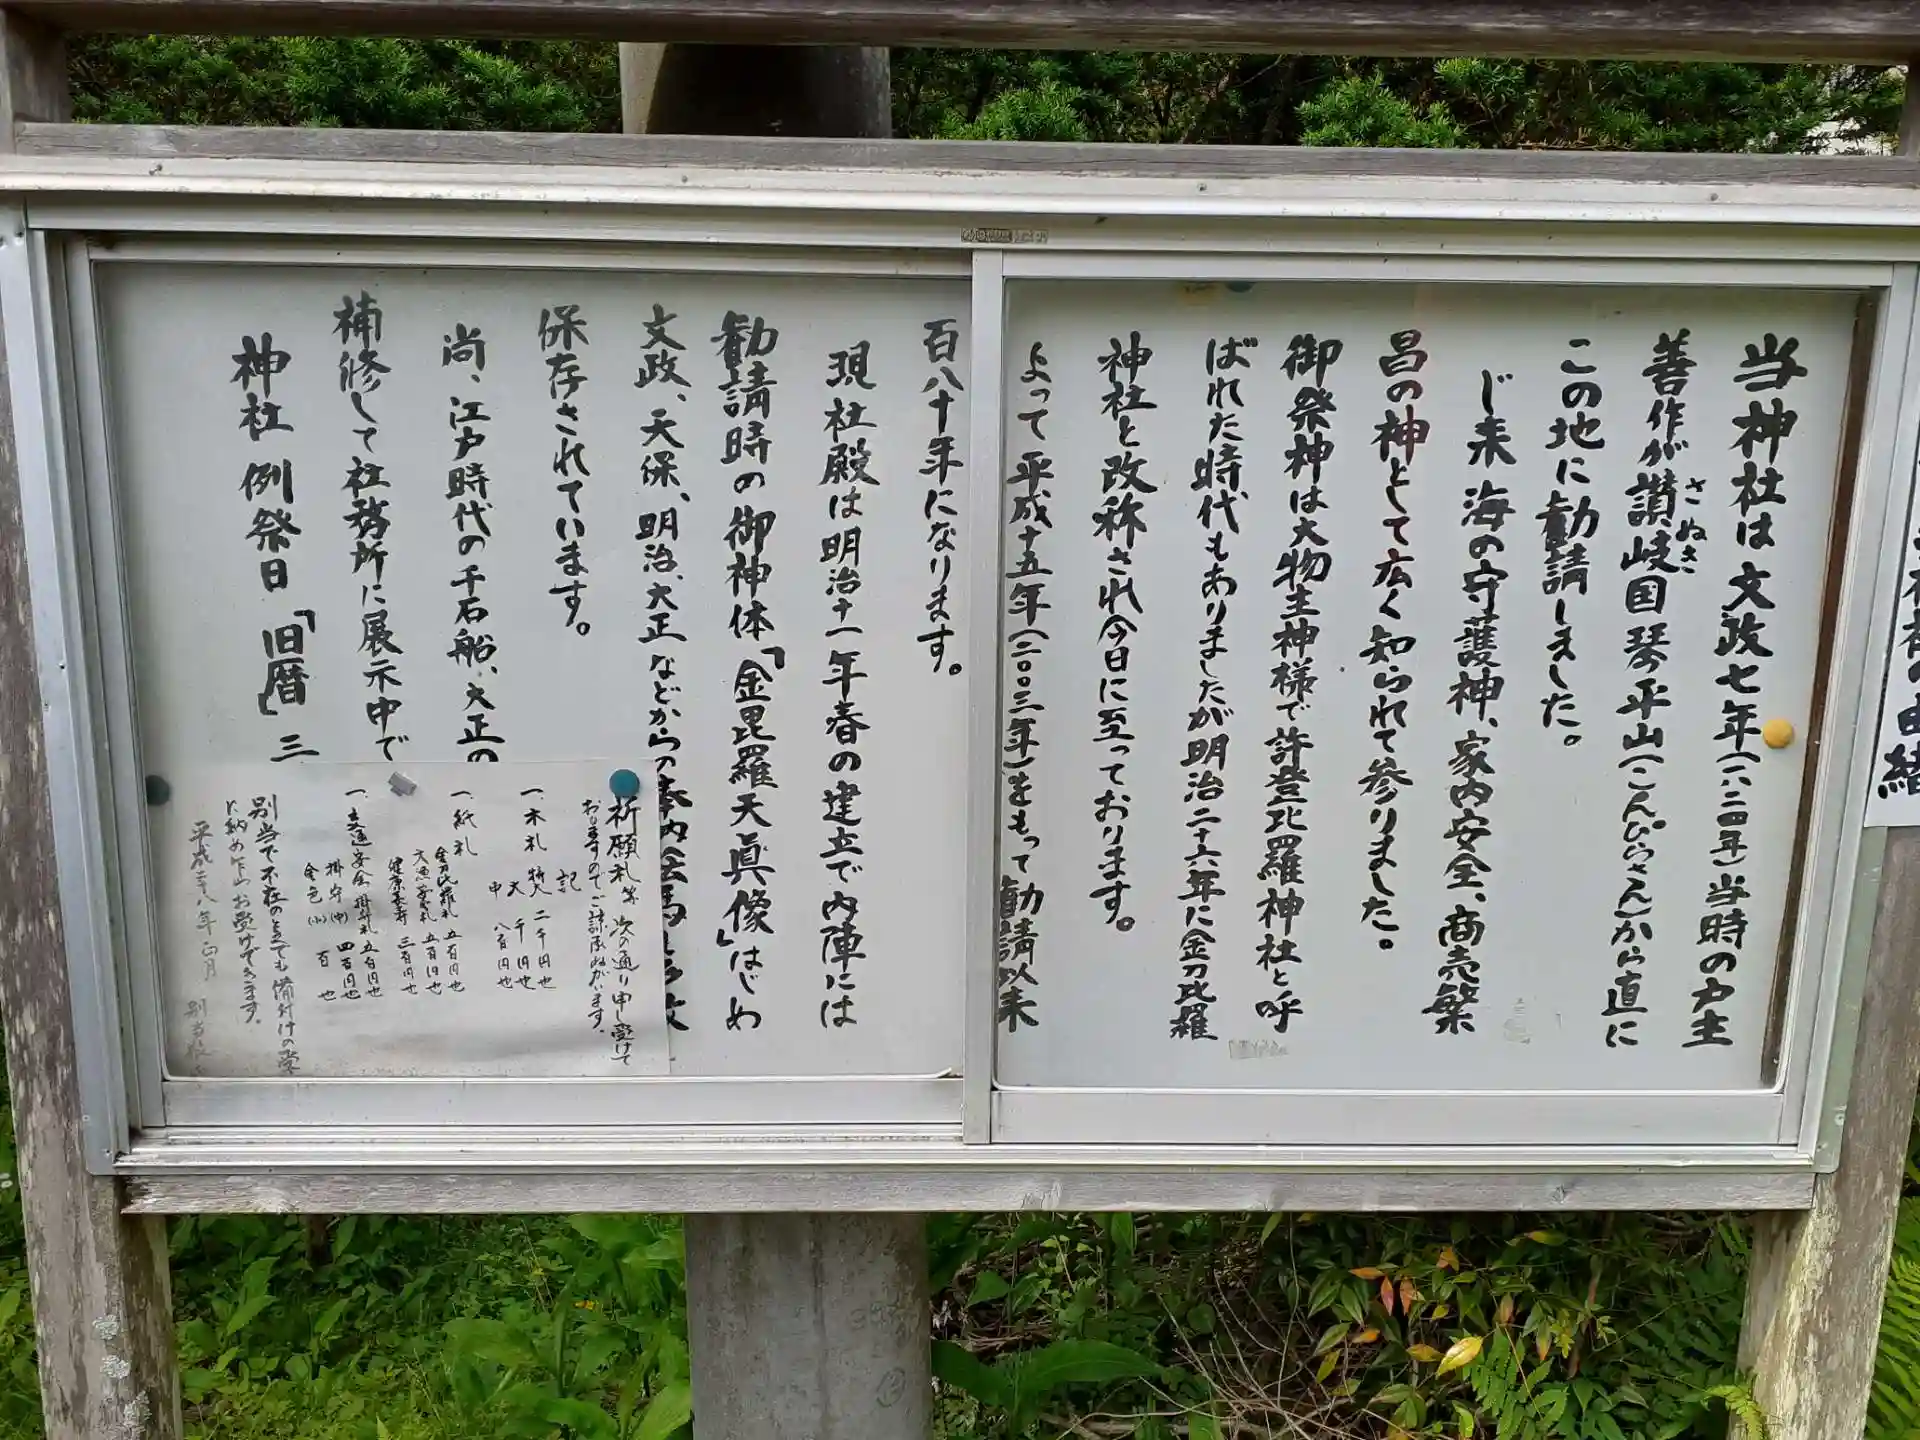 当神社は文政七年(一八二四年)当時の戸主
善作が讃岐国琴平山(こんぴらさん)から直に
さぬき
この地に勧請しました。
じ来海の守護神、家内安全、商売繁
昌の神として広く知られて参りました。
御祭神は大物主神様で許登比羅神社と呼
ばれた時代もありましたが明治二十六年に金刀比羅
神社と改称され今日に至っております。
よって平成十五年(二〇〇三年)をもって勧請以来
百八十年になります。
現社殿は明治十一年春の建立で内陣には
勧請時の御神体「金毘羅天眞像」はじめ
文政、天保、明治、大正などからの奉内絵馬
保存されています。
尚、江戸時代の千石船、大正の
補修して社務所に展示中で
神社例祭日「旧暦」三
祈願札等次の通り申し受けて
おりますのでご諒承ねがいます。
記
一、木札 特大 二千円也
大 千円也
中 八百円也
一、紙札 金刀比羅札 五百円也
大漁 五百円也
健康長寿 三百円也
一、交通安全 掛守札 五百円也
掛守(中) 四百円也
金色(小) 百 也
別当で不在のときでも備付けの
に納め お受けできます。
平成二十八年正月 別当
の由緒